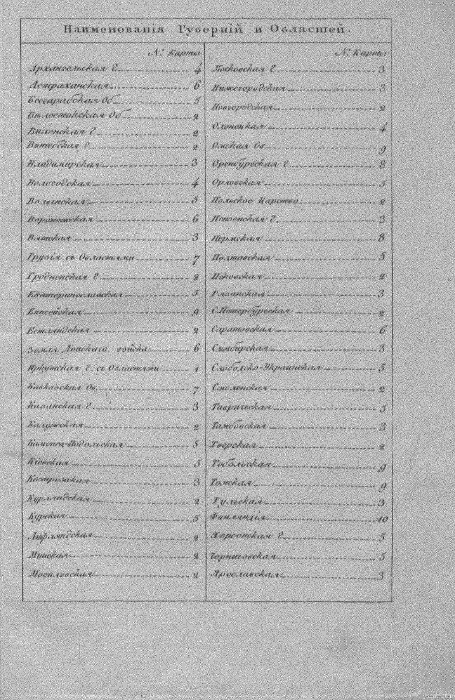 Наименованія Губерній и Областей.
№ Карты
Архангельская Г. 4
Астраханская 6
Бессарабская об. 5
Бѣлостокская об. 2
Виленская Г. 2
Витебская Г. 2
Владимирская 3
Вологодская 4
Волынская 5
Воронежская 6
Вятская 3
Грузія съ Областями 7
Гродненская Г. 2
Екатеринославская 5
Енисейская
Естляндская 2
Земля Донскаго войска 6
Иркутская Г. съ Областями 1
Кавказская об. 7
Казанская Г. 3
Калужская 2
Каменец-Подольская 5
Кіевская 5
Костромская 3
Курляндская 2
Курская 5
Лифляндская 2
Минская 2
Могилевская 2
№ Карты
Московская Г. 3
Нижегородская 3
Новгородская 2
Олонецкая 4
Омская об. 9
Оренбургская Г. 8
Орловская 5
Польское Царство 2
Пензенская Г. 3
Пермская 8
Полтавская 5
Псковская 2
Рязанская 3
С.Петербургская 2
Саратовская 6
Симбирская 3
Слободско-Украинская 5
Смоленская 2
Таврическая 5
Тамбовская 3
Тверская 2
Тобольская 9
Томская 9
Тульская 3
Финляндія 10
Херсонская Г. 5
Черниговская 5
Ярославская 3